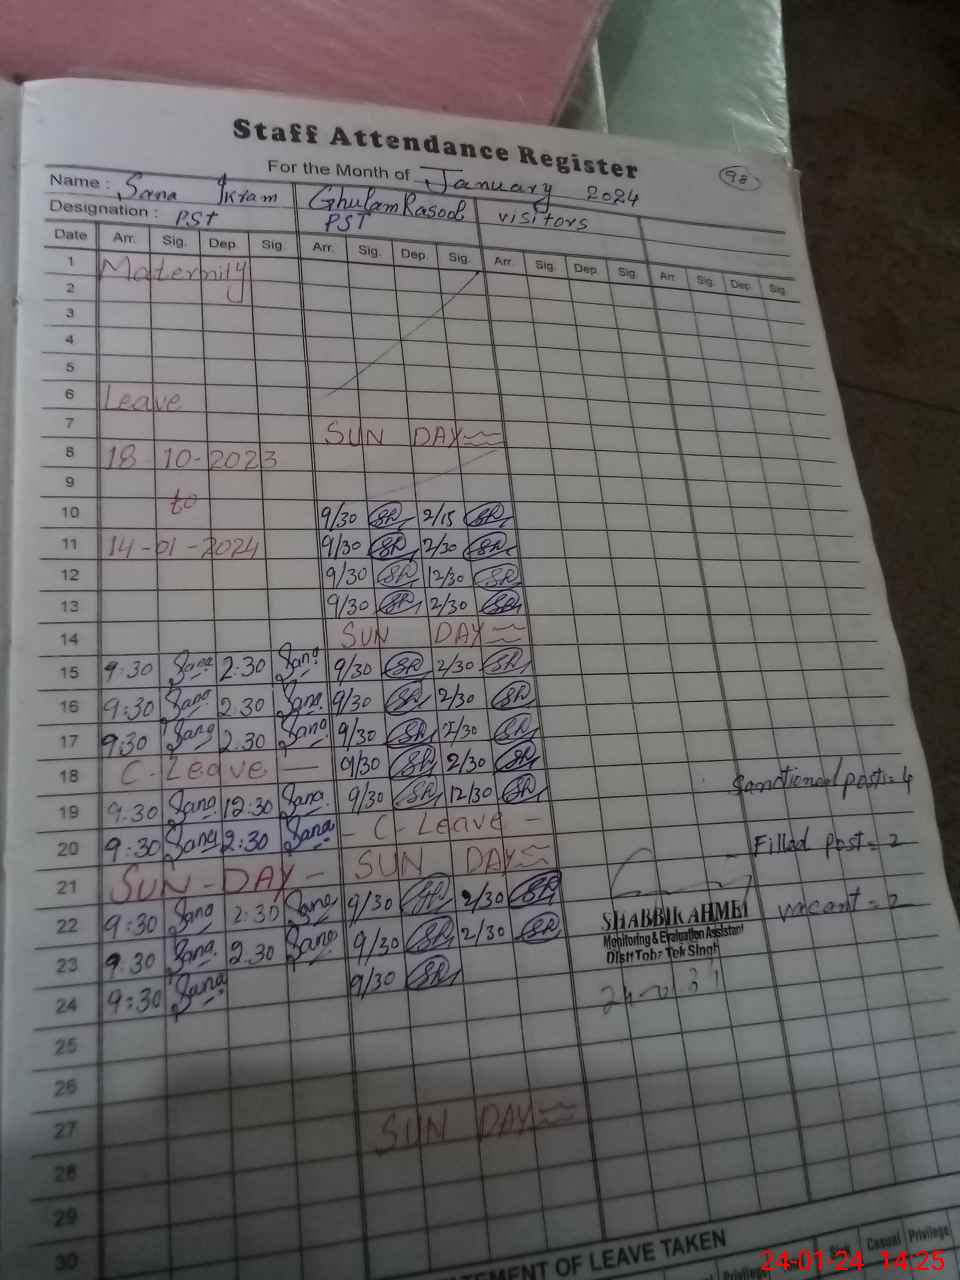 Staff Attendance Register
For the Month of January 2024
98
Name : Sana Ikram Ghulam Rasool visitors
Designation : PST PST
Date Arr. Sig. Dep. Sig. Arr. Sig. Dep. Sig. Arr. Sig. Dep. Sig. Arr. Sig. Dep. Sig.
1 Maternity
2
3
4
5
6 Leave
7 SUN DAY
8 18-10-2023
9 to
10 9/30 SR 2/15 SR
11 14-01-2024 9/30 SR 2/30 SR
12 9/30 SR 12/30 SR
13 9/30 SR 2/30 SR
14 SUN DAY
15 9:30 Sana 2:30 Sana 9/30 SR 2/30 SR
16 9:30 Sana 2.30 Sana 9/30 SR 2/30 SR
17 9:30 Sana 2.30 Sana 9/30 SR 2/30 SR
18 C-Leave — 9/30 SR 2/30 SR
19 9:30 Sana 12:30 Sana 9/30 SR 12/30 SR
20 9:30 Sana 2:30 Sana - C-Leave -
21 SUN-DAY- SUN DAY
22 9:30 Sana 2:30 Sana 9/30 SR 2/30 SR
23 9.30 Sana 2.30 Sana 9/30 SR 2/30 SR
24 9:30 Sana 9/30 SR
25
26
27 SUN DAY
28
29
30
Sanctioned post = 4
Filled Post = 2
vacant = 2
SHABBIR AHMED
Monitoring & Evaluation Assistant
Distt Toba Tek Singh
STATEMENT OF LEAVE TAKEN
Sick Casual Privilege
24-01-24 14:25